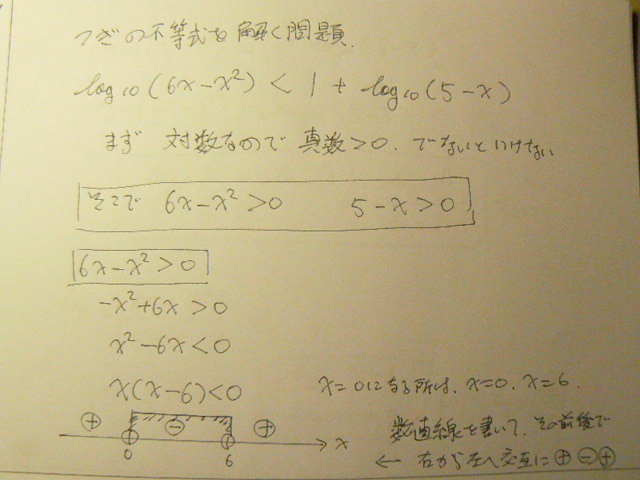 つぎの不等式を解く問題.
log₁₀(6x-x²) < 1 + log₁₀(5-x)
まず 対数なので 真数>0. でないといけない
そこで 6x-x²>0 5-x>0
6x-x²>0
-x²+6x>0
x²-6x<0
x(x-6)<0 x=0になる所は、x=0. x=6.
⊕ ⊖ ⊕ x
0 6
数直線を書いて、その前後で
← 右から左へ交互に⊕⊖⊕